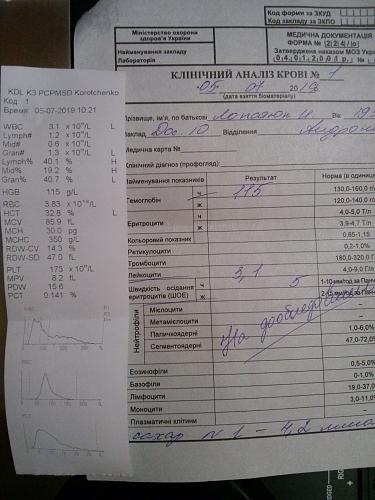 KDL K3 PCPM5D Korotchenko
Код: 1
Время: 05-07-2019 10:21
WBC 3.1 x 10⁹/L L
Lymph# 1.2 x 10⁹/L
Mid# 0.6 x 10⁹/L
Gran# 1.3 x 10⁹/L L
Lymph% 40.1 % H
Mid% 19.2 % H
Gran% 40.7 % L
HGB 115 g/L
RBC 3.83 x 10¹²/L
HCT 32.8 % L
MCV 85.9 fL
MCH 30.0 pg
MCHC 350 g/L
RDW-CV 14.3 %
RDW-SD 47.0 fL
PLT 173 x 10⁹/L
MPV 8.2 fL
PDW 15.6
PCT 0.141 %
RBC
PLT
Код форми за ЗКУД
Код закладу за ЗКПО
Міністерство охорони
здоров'я України
Найменування закладу
Лабораторія
МЕДИЧНА ДОКУМЕНТАЦІЯ
ФОРМА № 224/о
Затверджена наказом МОЗ Украї
04.01.2001р. №
КЛІНІЧНИЙ АНАЛІЗ КРОВІ № 1
05 07 2019
(дата взяття біоматеріалу)
Прізвище, ім'я, по батькові
Відділення
Медична карта №
Клінічний діагноз (профогляд):
Найменування показників Результат Норма (в одиниц
Гемоглобін ч 115 130,0-160,0 г/
ж 120,0-140,0 г/
Еритроцити ч 4,0-5,0 Т/л
ж 3,9-4,7 Т/л
Кольоровий показник 0,85-1,15
Ретикулоцити 0,2-1,0%
Тромбоцити 180,0-320,0 Г
Лейкоцити 3,1 4,0-9,0 Г/л
Швидкість осідання еритроцитів (ШОЕ) ч 5 1-10 мм/год за Панч
ж 2-15 мм/год за Панч
Нейтрофіли
Мієлоцити
Метамієлоцити
Паличкоядерні 1,0-6,0%
Сегментоядерні 47,0-72,0
На дообследование
Еозинофіли 0,5-5,0%
Базофіли 0-1,0%
Лімфоцити 19,0-37,0
Моноцити 3,0-11,0
Плазматичні клітини
сахар N 1 - 4,2 ммо